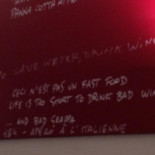 PANNA COTTA
SAVE WATER, DRINK WINE
CECI N'EST PAS UN FAST FOOD
LIFE IS TOO SHORT TO DRINK BAD WINE
... AND BAD GRAPPA
APERO À L'ITALIENNE